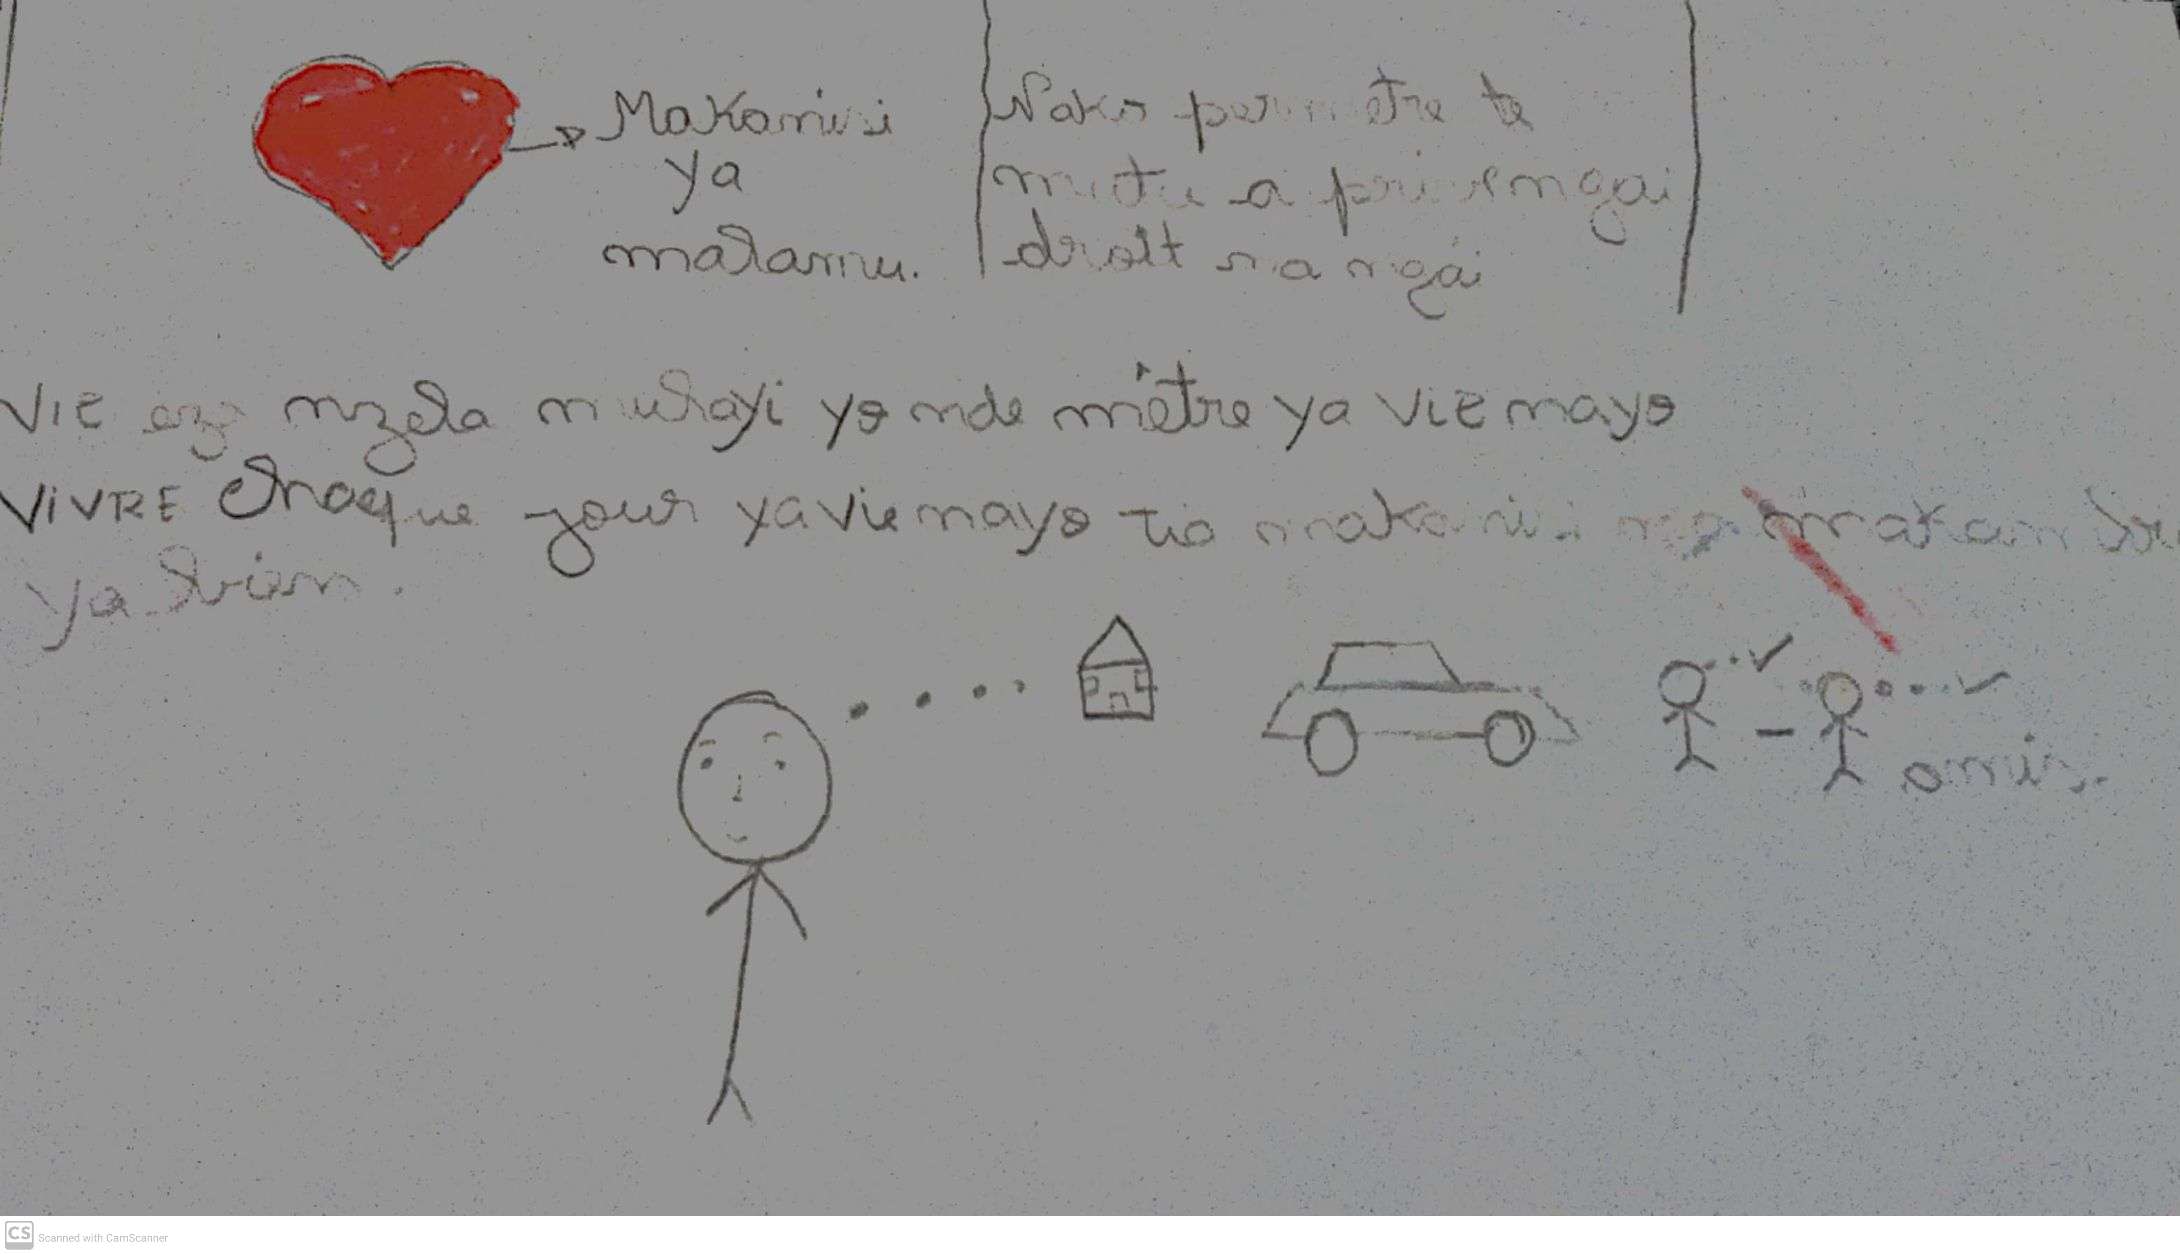 Makanisi
ya
malamu.
Nako permètre te
mutu a prive ngai
droit na ngai
VIE eza nzela mulayi yo nde mètre ya VIE nayo
VIVRE chaque jour ya vie nayo tia makanisi na makambu
ya bien.
amis.
CS Scanned with CamScanner